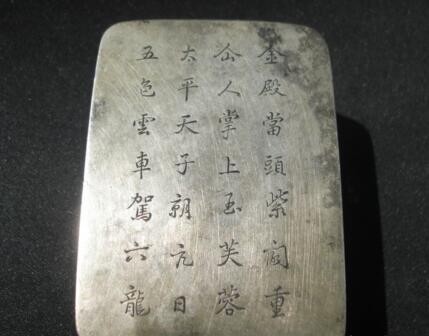 金殿當頭紫閣重
仚人掌上玉芙蓉
太平天子朝元日
五色雲車駕六龍